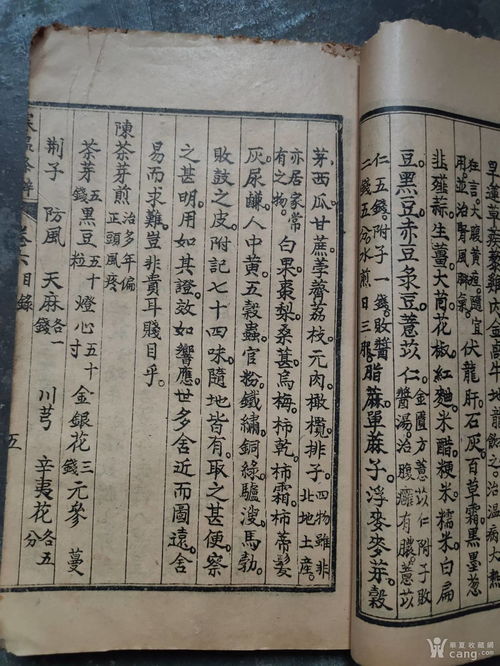 狂言。大腹黃
用。並治腎風腳氣。
伏龍肝石灰百草霜黑墨葱
韭薤蒜生薑大茴花椒紅麯米醋粳米糯米白扁
豆黑豆赤豆彔豆薏苡仁
金匱方薏苡仁附子敗
醬湯。治腹癰有膿。薏苡
仁五錢。附子一錢。敗醬
二錢五分水煎日三服。
脂蔴萆蔴子浮麥麥芽穀
芽西瓜甘蔗孛薺荔枝元肉橄欖排子。
四物雖非
北地土產。
亦居家常
有之物。
白果棗梨桑葚烏梅柿乾柿霜柿蒂髮
灰尿鹻人中黃五穀蟲官粉鐵繡銅綠驢溲馬勃。
敗鼓之皮。附記七十四味隨地皆有。取之甚便察
之甚明。用如其證。效如響應。世多舍近而圖遠。舍
易而求難。豈非貴耳賤目乎。
陳茶芽煎 治多年偏正頭風疼
茶芽五錢 黑豆五十粒 燈心五十寸 金銀花三錢 元參 蔓
荊子 防風 天麻各一錢 川芎 辛夷花各五分
卷六目錄 五
華夏收藏網
cang.com